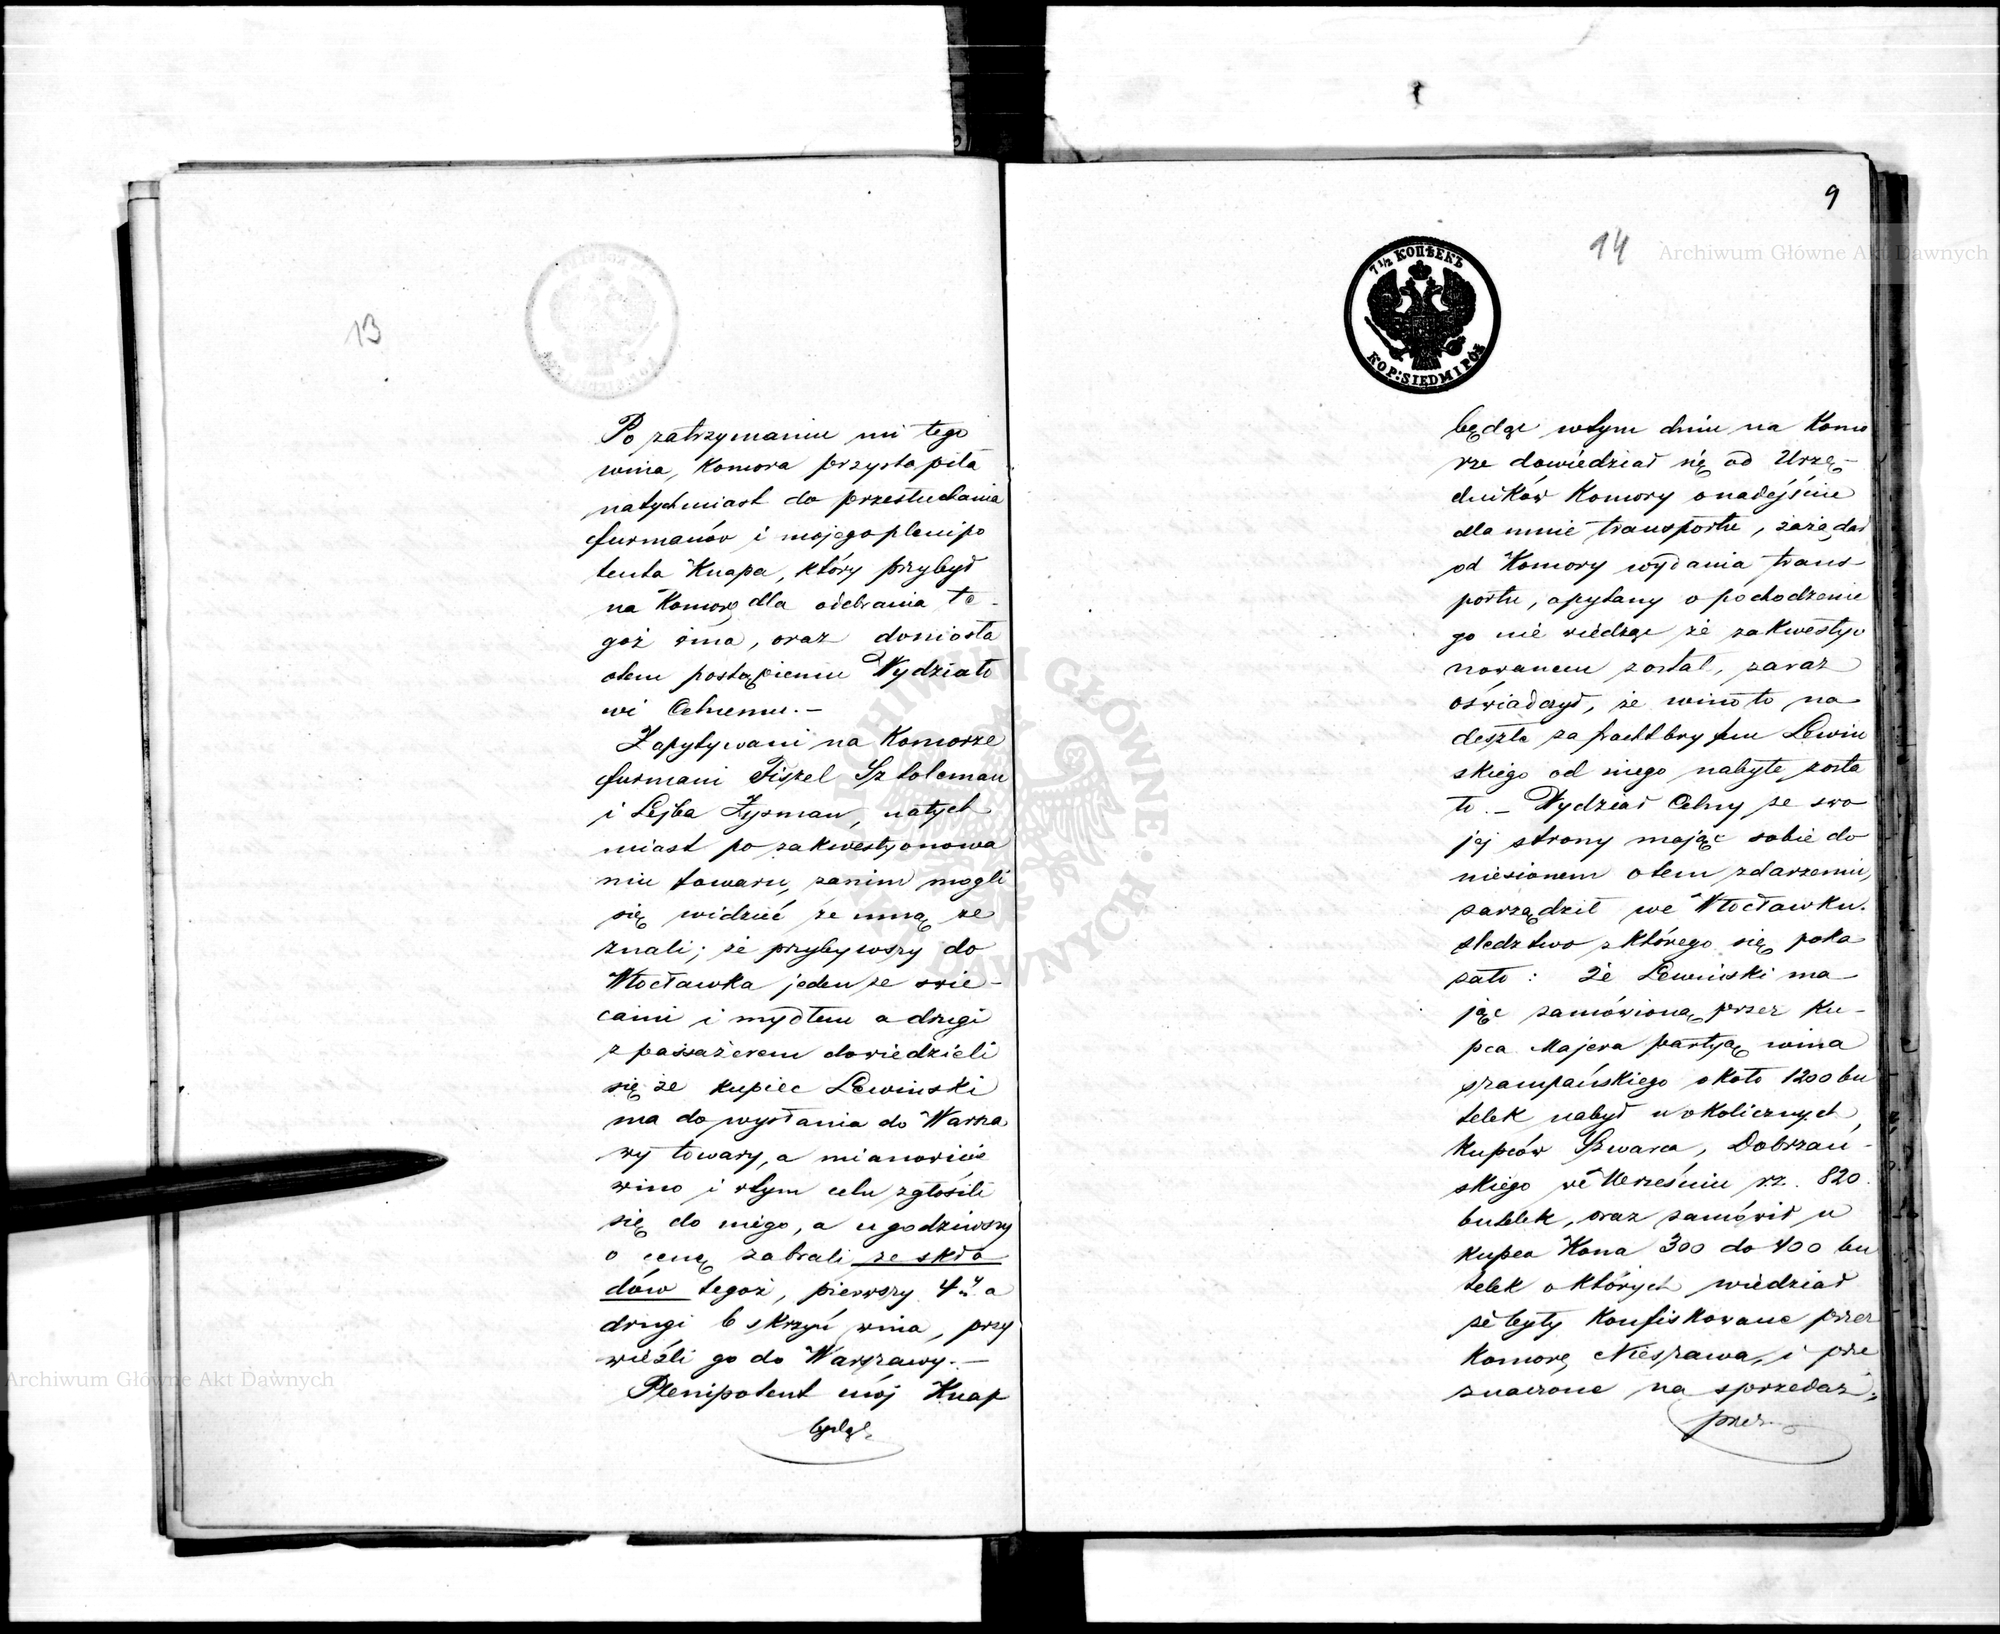 13
Po zatrzymaniu mi tego
wina, Komora przystąpiła
natychmiast do przesłuchania
furmanów i mojego plenipo
tenta Knapa, który przybył
na Komorę dla odebrania te-
goż wina, oraz doniosła
otem postąpieniu Wydziało
wi Celnemu.-
Zapytywani na Komorze
furmani Fiszel Sztoleman
i Lejba Zysman, natych
miast po zakwestyonowa
niu towaru, zanim mogli
się widzieć ze mną ze
znali; że przybywszy do
Włocławka jeden ze świe-
cami i mydłem a drugi
z passażerem dowiedzieli
się że kupiec Lewinski
ma do wysłania do Warsza
wy towary, a mianowicie
wino i wtym celu zgłosili
się do niego, a ugodziwszy
o cenę zabrali ze skła
dów tegoż, pierwszy 4ry a
drugi 6 skrzyń wina, przy
wieźli go do Warszawy.-
Plenipotent mój Knap
będąc
9
14
7 1/2 КОПѢЕКЪ
KOP: SIEDM I PÓŁ
będąc wtym dniu na Komo
rze dowiedział się od Urzę-
dników Komory o nadejściu
dla mnie transportu, zażądał
od Komory wydania trans-
portu, a pytany o pochodzenie
go nie wiedząc że zakwestyo
nowanem został, zaraz
oświadczył, że wino to na
deszło za frachtbryfem Lewin
skiego od niego nabyte zosta
ło.- Wydział Celny ze swo
jej strony mając sobie do
niesionem otem zdarzeniu,
zarządził we Włocławku
śledztwo z którego się poka
zało: że Lewinski ma
jąc zamówioną przez Ku-
pca Majera partyę wina
szampańskiego około 1200 bu
telek nabył u okolicznych
Kupców Szwarca, Dobrzań-
skiego we Wrześniu r.z. 820
butelek, oraz zamówił u
kupca Kona 300 do 400 bu
telek o których wiedział
że były konfiskowane przez
Komorę Nieszawa, i prze
znaczone na sprzedaż,
przez
Archiwum Główne Akt Dawnych
Archiwum Główne Akt Dawnych
ARCHIWUM GŁÓWNE AKT DAWNYCH